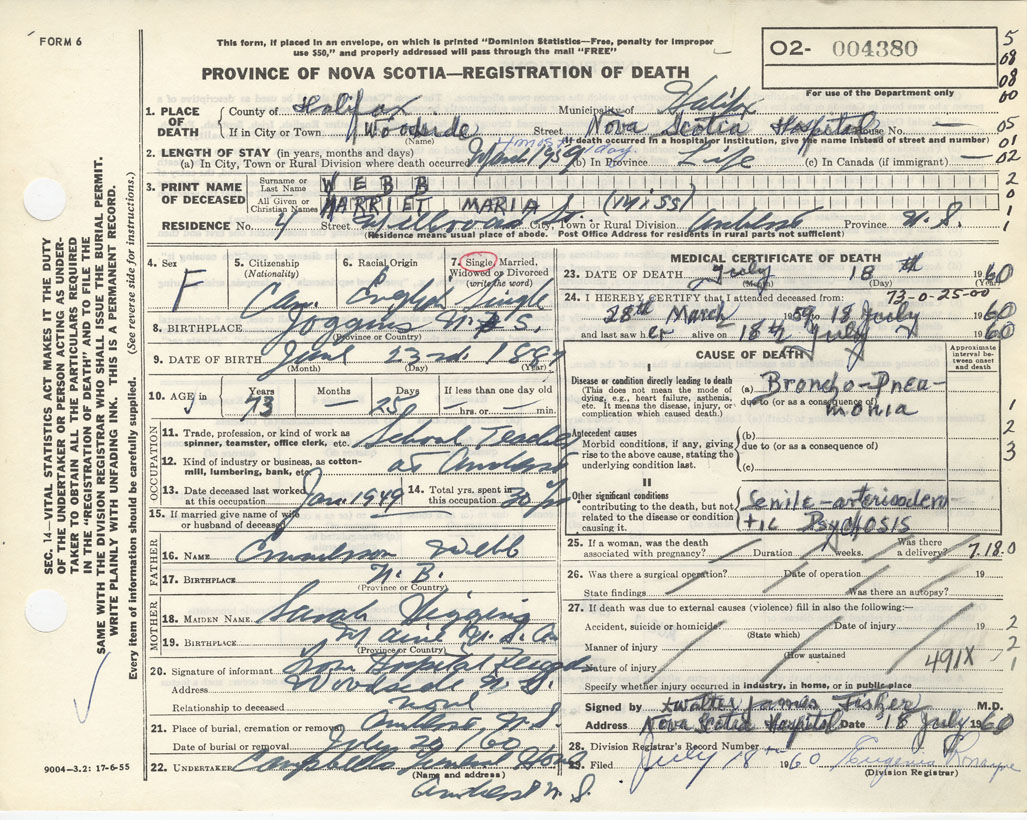 FORM 6
This form, if placed in an envelope, on which is printed "Dominion Statistics—Free, penalty for improper
use $50," and properly addressed will pass through the mail "FREE"
PROVINCE OF NOVA SCOTIA—REGISTRATION OF DEATH
02- 004380
For use of the Department only
5
08
08
00
05
01
02
2
0
1
1
1. PLACE OF DEATH County of Halifax Municipality of Halifax
If in City or Town Woodside Street Nova Scotia Hospital House No. —
(Name) (If death occurred in a hospital or institution, give the name instead of street and number)
2. LENGTH OF STAY (in years, months and days)
(a) In City, Town or Rural Division where death occurred (b) In Province Life (c) In Canada (if immigrant) —
3. PRINT NAME OF DECEASED
Surname or Last Name WEBB
All Given or Christian Names HARRIET MARIA (Miss)
RESIDENCE No. 4 Street St. City, Town or Rural Division Amherst Province N.S.
(Residence means usual place of abode. Post Office Address for residents in rural parts not sufficient)
4. Sex F
5. Citizenship (Nationality) Can.
6. Racial Origin English
7. Single, Married, Widowed or Divorced (write the word) Single
8. BIRTHPLACE Joggins N.S.
(Province or Country)
9. DATE OF BIRTH June 23rd 1887
(Month) (Day) (Year)
10. AGE in Years 73 Months — Days 25 If less than one day old
— hrs. or — min.
OCCUPATION
11. Trade, profession, or kind of work as spinner, teamster, office clerk, etc. School Teacher
12. Kind of industry or business, as cotton-mill, lumbering, bank, etc. at Amherst
13. Date deceased last worked at this occupation Jan. 1949 14. Total yrs. spent in this occupation 30 yrs
15. If married give name of wife or husband of deceased —
FATHER
16. NAME Webb
17. BIRTHPLACE N.B.
(Province or Country)
MOTHER
18. MAIDEN NAME Sarah Higgins
19. BIRTHPLACE Maine U.S.A.
(Province or Country)
20. Signature of informant From Hospital
Address Woodside N.S.
Relationship to deceased none
21. Place of burial, cremation or removal Amherst N.S.
Date of burial or removal July 20/60
22. UNDERTAKER Campbells Funeral Home
(Name and address)
Amherst N.S.
MEDICAL CERTIFICATE OF DEATH
23. DATE OF DEATH July 18th 1960
(Month) (Day)
73-0-25-00
24. I HEREBY CERTIFY that I attended deceased from:
28th March 1959 to 18 July 1960
and last saw her alive on 18th July 1960
CAUSE OF DEATH
Approximate interval between onset and death
I
Disease or condition directly leading to death
(This does not mean the mode of dying, e.g., heart failure, asthenia, etc. It means the disease, injury, or complication which caused death.)
(a) Broncho-Pneumonia
due to (or as a consequence of)
Antecedent causes
Morbid conditions, if any, giving rise to the above cause, stating the underlying condition last.
(b)
due to (or as a consequence of)
(c)
II
Other significant conditions
contributing to the death, but not related to the disease or condition causing it.
Psychosis
1
2
3
25. If a woman, was the death associated with pregnancy? Duration weeks. Was there a delivery?
7.18.0
26. Was there a surgical operation? Date of operation 19
State findings Was there an autopsy?
27. If death was due to external causes (violence) fill in also the following:—
Accident, suicide or homicide? Date of injury 19
(State which)
Manner of injury
(How sustained
Nature of injury 491X
Specify whether injury occurred in industry, in home, or in public place
2
2
1
Signed by Walter James Fisher M.D.
Address Nova Scotia Hospital Date 18 July 1960
28. Division Registrar's Record Number
29. Filed July 18th 1960
(Division Registrar)
SEC. 14—VITAL STATISTICS ACT MAKES IT THE DUTY
OF THE UNDERTAKER OR PERSON ACTING AS UNDER-
TAKER TO OBTAIN ALL THE PARTICULARS REQUIRED
IN THE "REGISTRATION OF DEATH" AND TO FILE THE
SAME WITH THE DIVISION REGISTRAR WHO SHALL ISSUE THE BURIAL PERMIT.
WRITE PLAINLY WITH UNFADING INK. THIS IS A PERMANENT RECORD.
Every item of information should be carefully supplied. (See reverse side for instructions.)
9004—3.2: 17-6-55